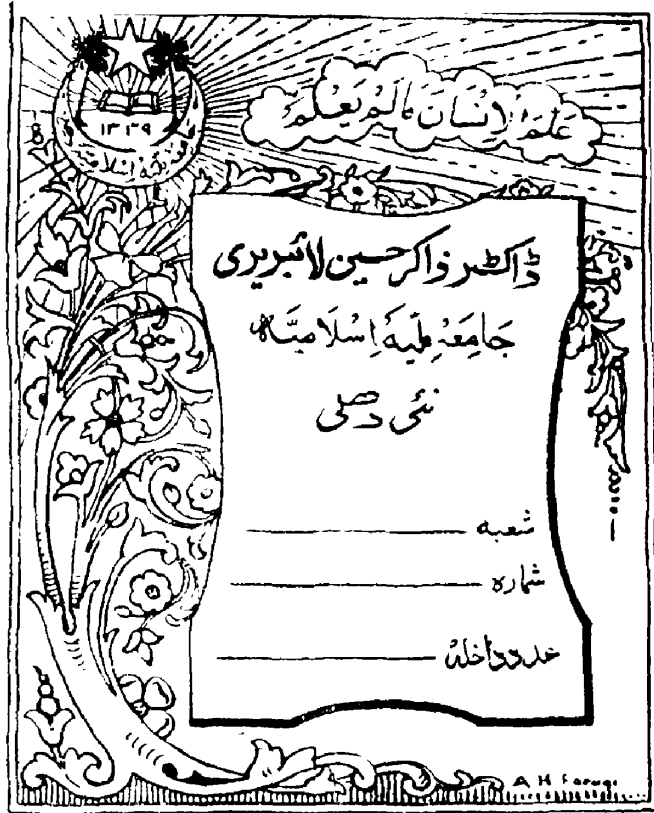 عَلَّمَ الْاِنْسَانَ مَالَمْ یَعْلَمْ
۱۳۳۹
ڈاکٹر ذاکر حسین لائبریری
جَامِعَہ مِلّیَہ اِسْلَامِیَّہ
نئی دھلی
شعبہ
شمارہ
عدد داخلہ
A H Faruqi